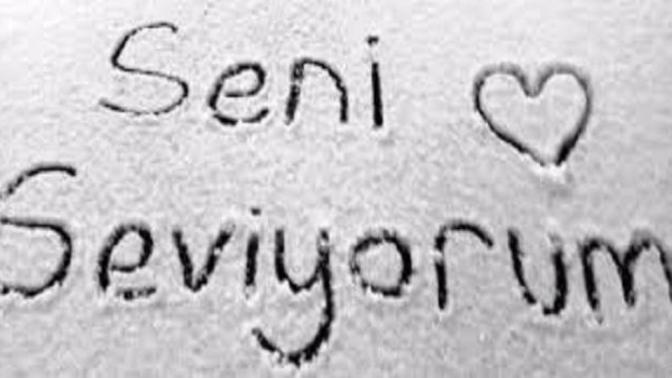 Seni
Seviyorum